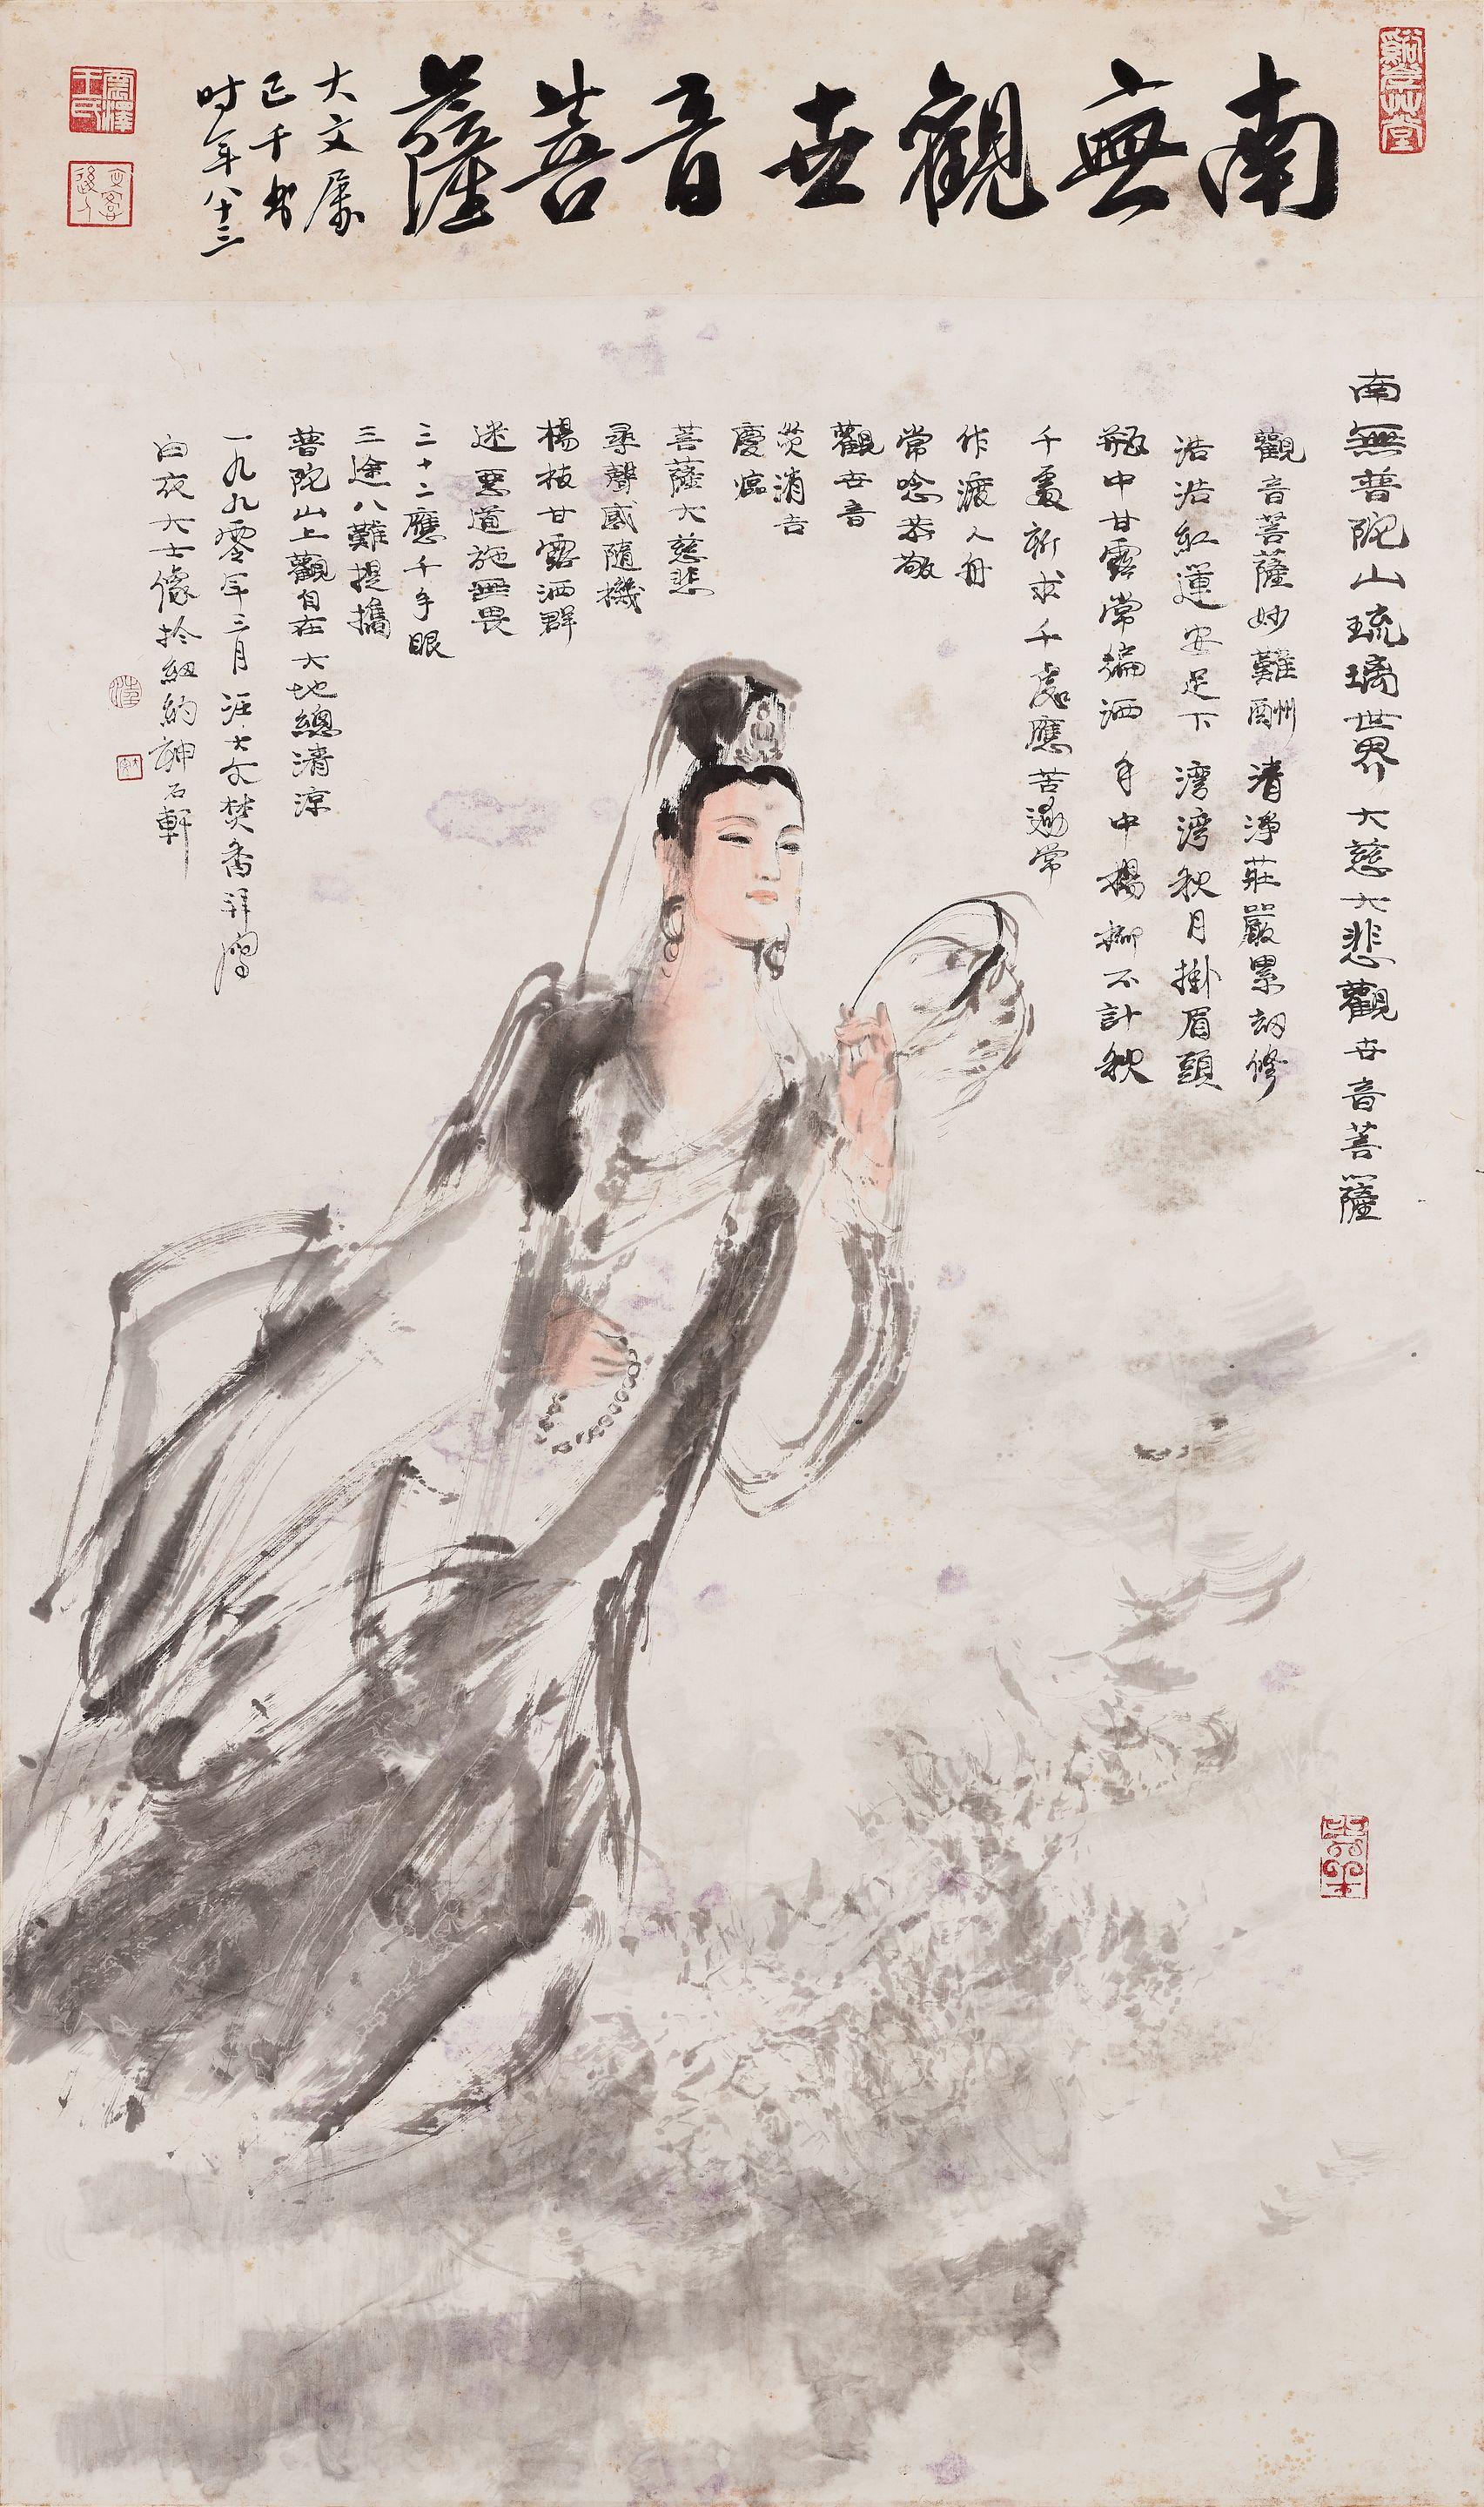 南無觀世音菩薩
大文屬
己千書
时年八十三
南無普陀山琉璃世界大慈大悲觀世音菩薩
觀音菩薩妙難酬 清淨莊嚴累劫修
浩浩紅蓮安足下 湾湾秋月掛眉頭
瓶中甘露常徧洒 手中楊柳不計秋
千處祈求千處應苦海常
作渡人舟
常唸恭敬
觀世音
災消吉
慶臨
菩薩大慈悲
尋聲感隨機
楊枝甘露洒群
迷惡道施無畏
三十二應千手眼
三途八難提攜
普陀山上觀自在大地總清涼
一九九零年三月汪大文焚香拜寫
白衣大士像於紐約 石軒